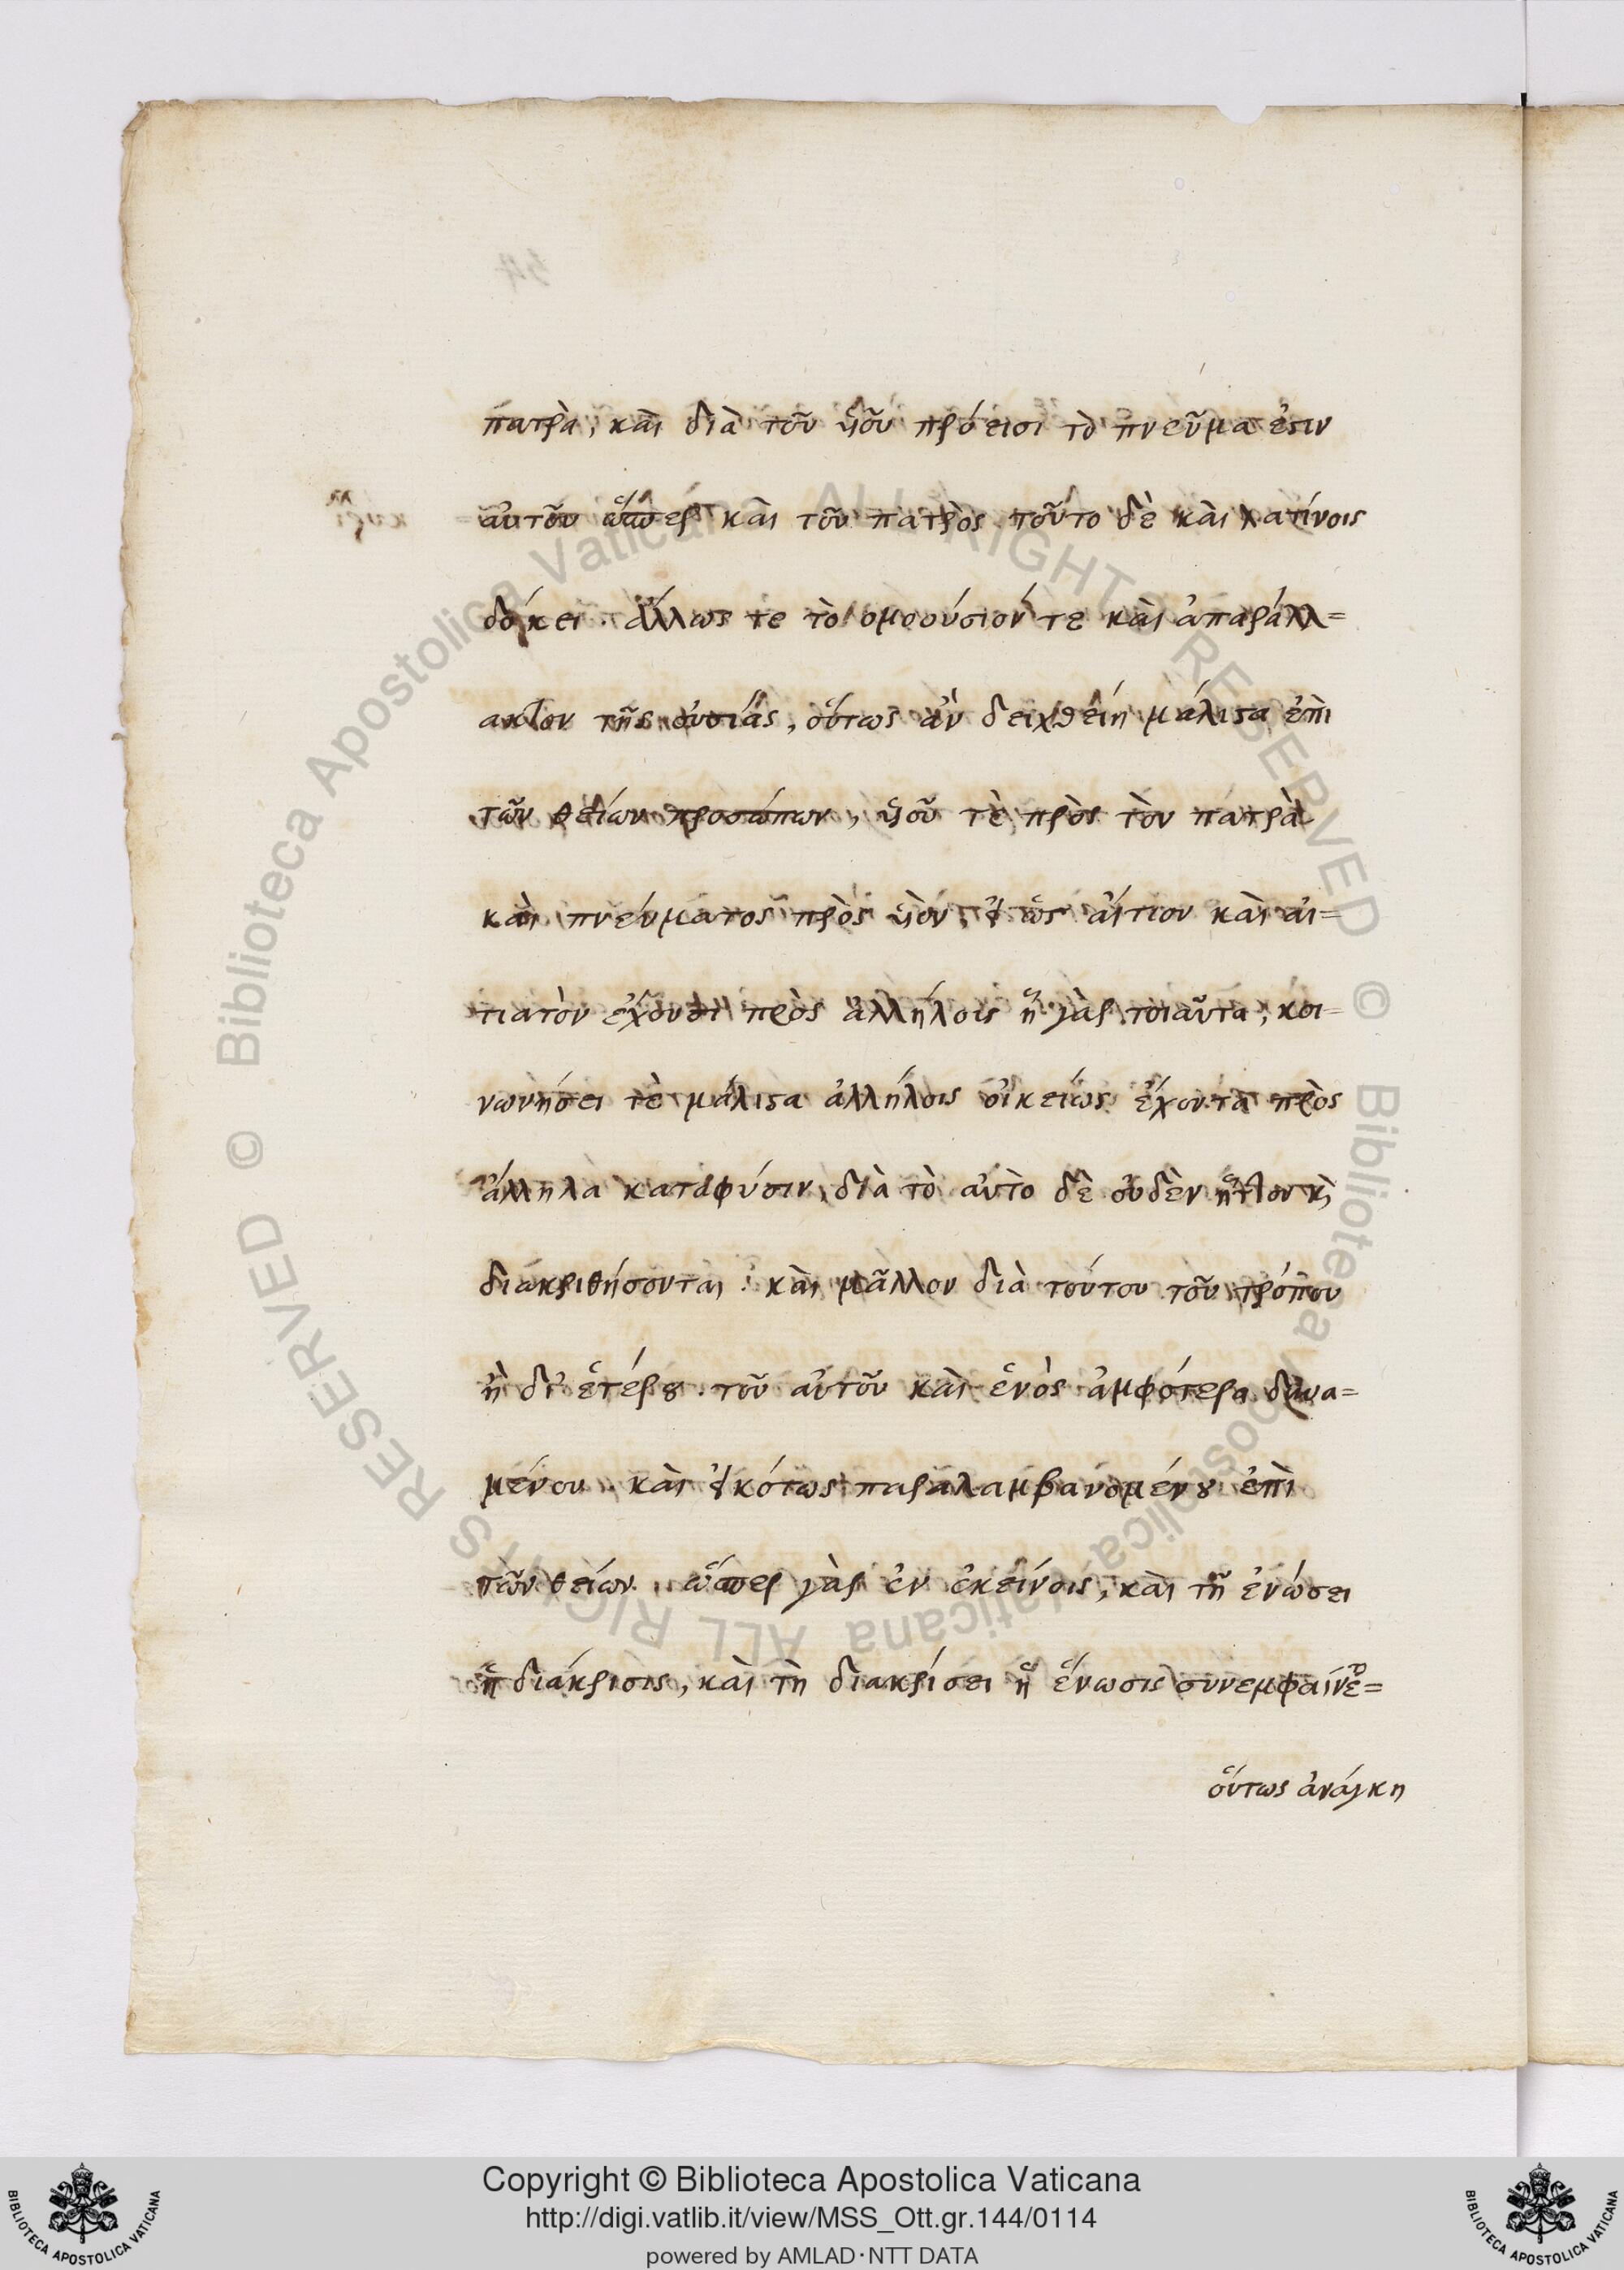 πατρὰ, καὶ διὰ τοῦ ὑιοῦ πρόεισι τὸ πνεῦμα ἐστιν
αὐτοῦ ὥσπερ καὶ τοῦ πατρὸς. τοῦτο δὲ καὶ λατίνοις
δόκει. ἄλλως τε τὸ ὁμοούσιόν τε καὶ ἀπαράλλ=
ακτον τῆς οὐσίας, οὕτως ἂν δειχθείη μάλιστα ἐπὶ
τῶν θείων προσώπων, ὑιοῦ τὲ πρὸς τὸν πατρὰ
καὶ πνεύματος πρὸς ὑιὸν, εἰ ὡς αἴτιον καὶ αἰ=
τιατὸν ἔχουσι πρὸς ἀλλήλοις ἡ γὰρ τοιαῦτα, κοι=
νωνήσει τὲ μάλιστα ἀλλήλοις οἰκείως ἔχοντα πρὸς
ἄλληλα κατὰ φύσιν, διὰ τὸ αὐτὸ δὲ οὐδὲν ἧττον κὶ
διακριθήσονται. καὶ μᾶλλον διὰ τούτου τοῦ τρόπου
ἢ δι' ἑτέρου. τοῦ αὐτοῦ καὶ ἑνὸς ἀμφότερα δυνα=
μένου. καὶ εἰκότως παραλαμβανομένου ἐπὶ
τῶν θείων. ὥσπερ γὰρ ἐν ἐκείνοις, καὶ τῆ ἑνώσει
ἡ διάκρισις, καὶ τὴ διακρίσει ἡ ἕνωσις συνεμφαίνε=
οὕτως ἀνάγκη
Copyright © Biblioteca Apostolica Vaticana
http://digi.vatlib.it/view/MSS_Ott.gr.144/0114
powered by AMLAD·NTT DATA
BIBLIOTECA APOSTOLICA VATICANA
BIBLIOTECA APOSTOLICA VATICANA
© Biblioteca Apostolica Vaticana ALL RIGHTS RESERVED © Biblioteca Apostolica Vaticana ALL RIGHTS RESERVED